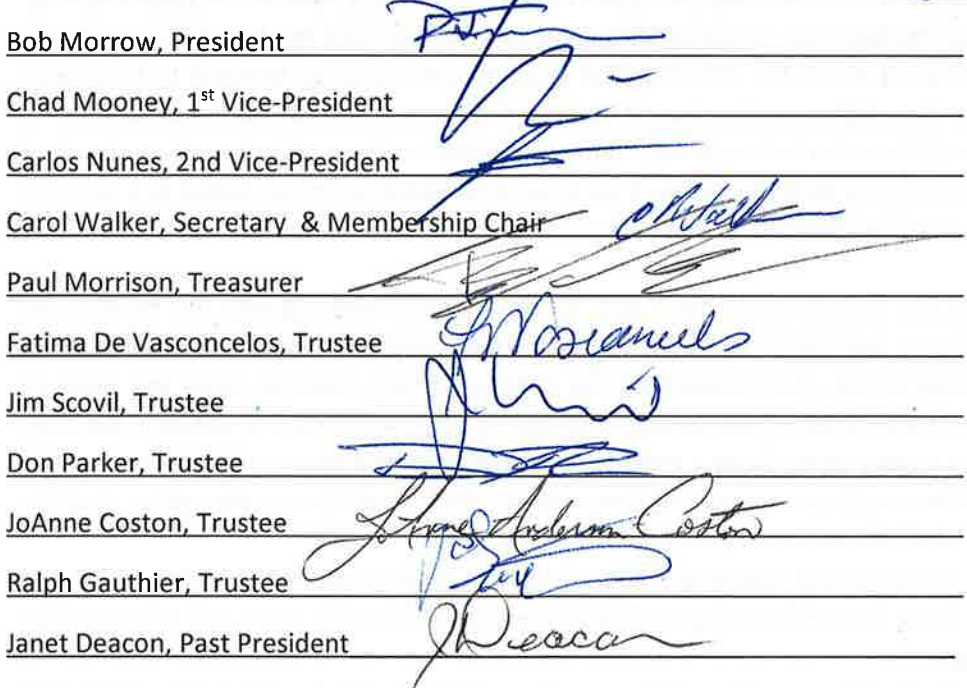 Bob Morrow, President
Chad Mooney, 1st Vice-President
Carlos Nunes, 2nd Vice-President
Carol Walker, Secretary & Membership Chair
Paul Morrison, Treasurer
Fatima De Vasconcelos, Trustee
Jim Scovil, Trustee
Don Parker, Trustee
JoAnne Coston, Trustee JoAnne Anderson Coston
Ralph Gauthier, Trustee
Janet Deacon, Past President JDeacon